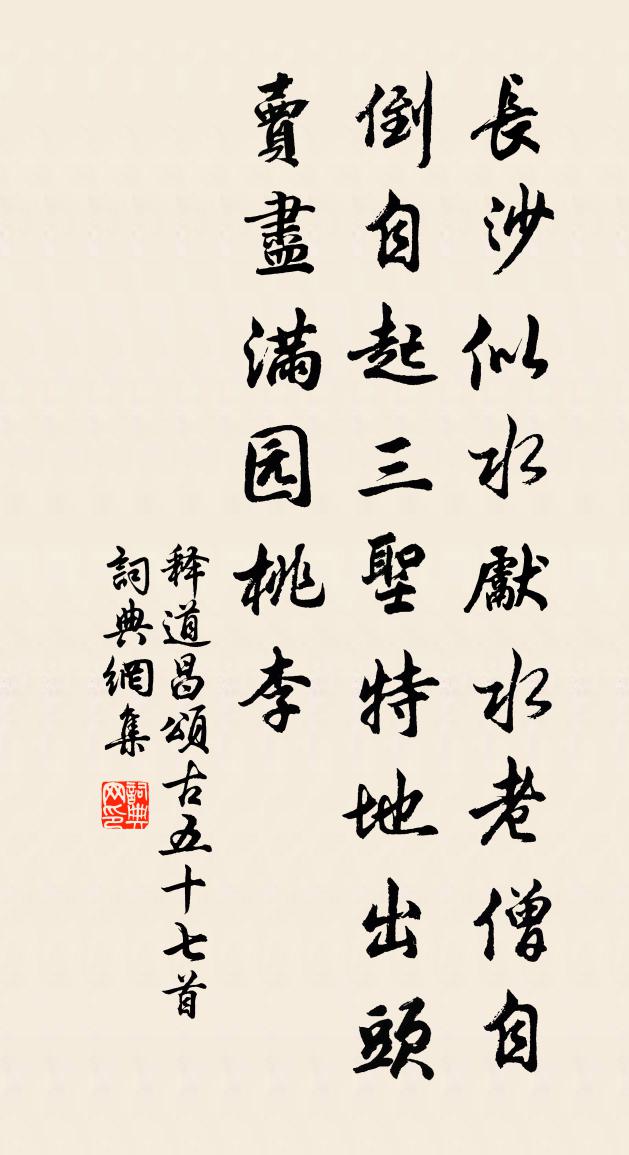 長沙似水獻水老僧自
倒自起三聖特地出頭
賣盡滿园桃李
释道昌頌古五十七首
詞典網集
詞典网印